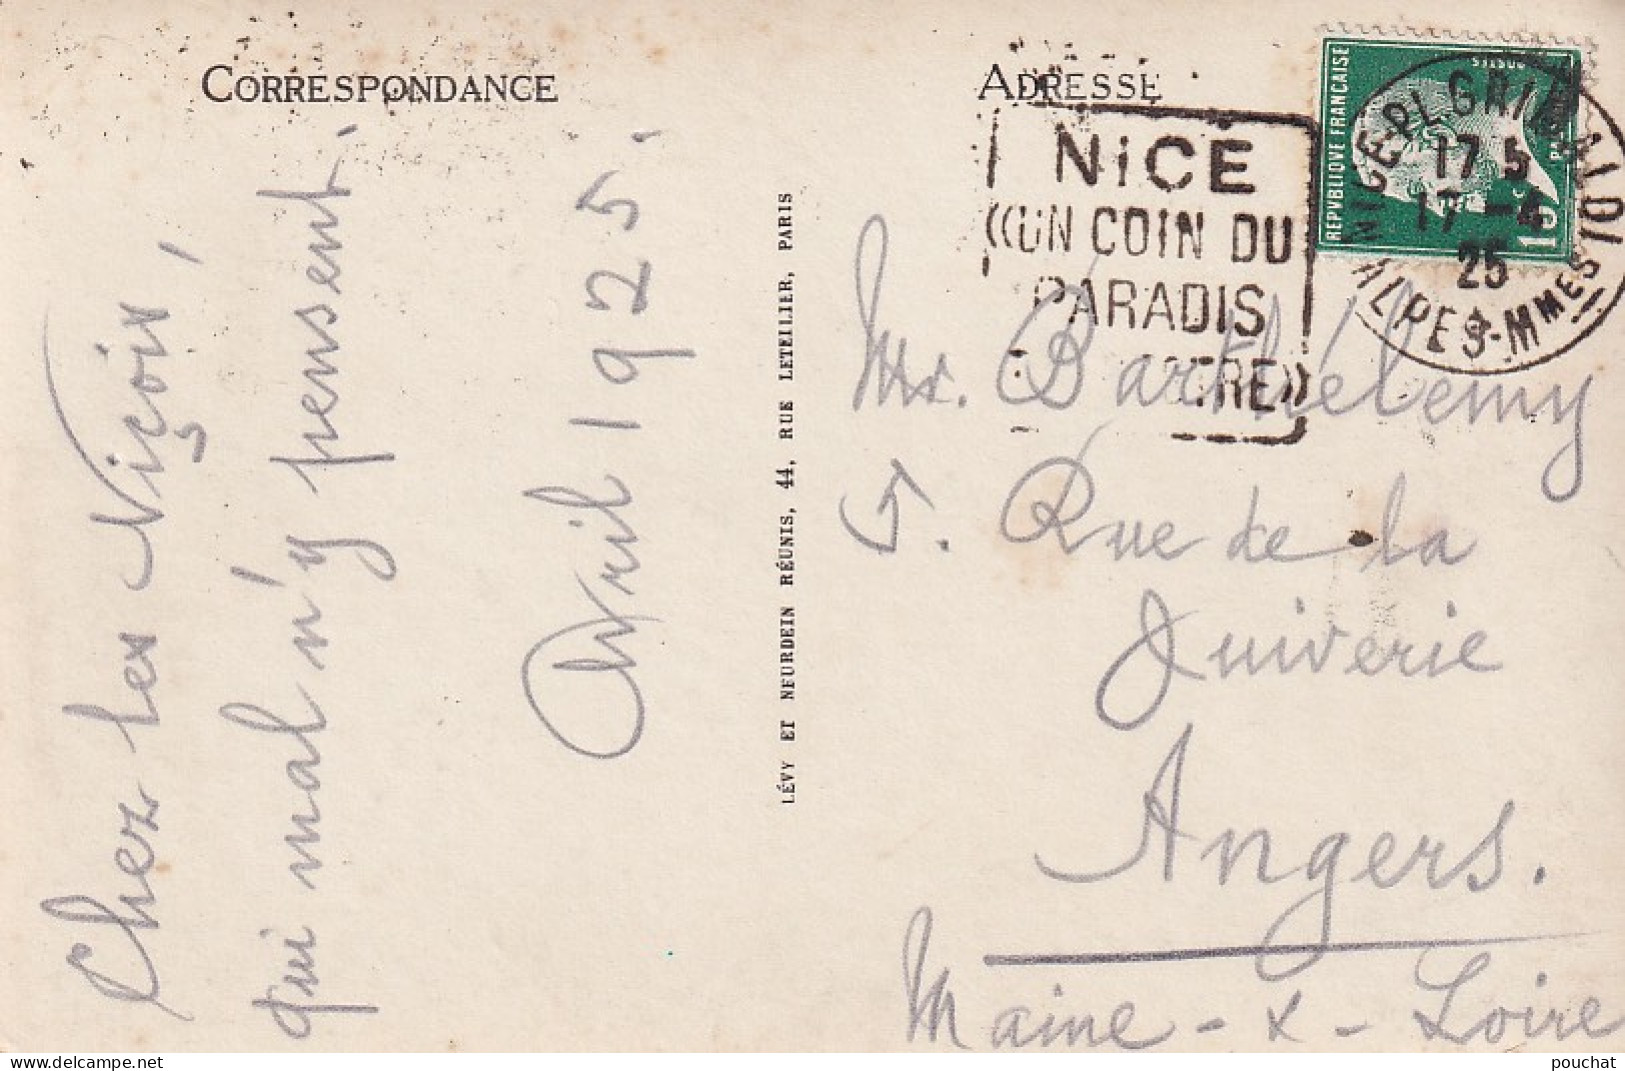 CORRESPONDANCE
Chez les Niçois,
qui mal n'y pensent.
Avril 1925.
LÉVY ET NEURDEIN RÉUNIS, 44, RUE LETELLIER, PARIS
ADRESSE
NICE
«UN COIN DU
PARADIS
»
REPVBLIQVE FRANÇAISE
POSTES
15c
NICE-PL. GRIMALDI
17 5
17 -4
25
ALPES-MMES
Mr. Barthélemy
5. Rue de la
Quiverie
Angers.
Maine-&-Loire
www.delcampe.net
pouchat